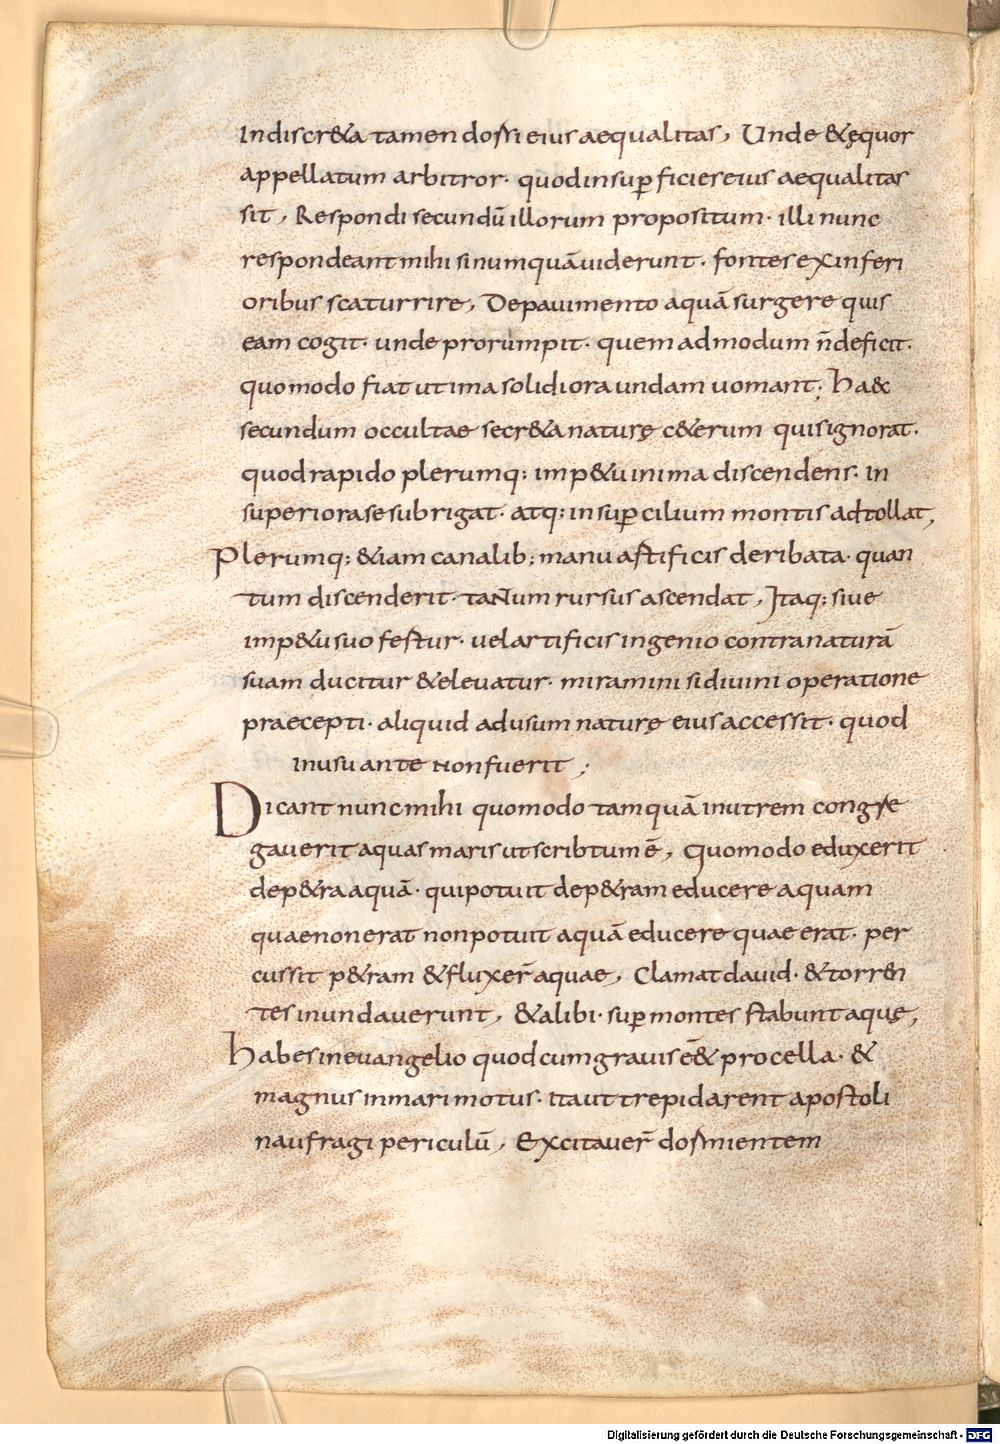 Indiscr&a tamen dorsi eius aequalitas, Unde & ęquor
appellatum arbitror· quod in sup̄ficies eius aequalitas
sit, Respondi secundū illorum propositum· illi nunc
respondeant mihi si numquā uiderunt· fontes ex inferi
oribus scaturrire, De pauimento aquā surgere quis
eam cogit· unde prorumpit· quem ad modum n̄ deficit·
quomodo fiat ut ima solidiora undam uomant; Ha&
secundum occultae secr&a naturę c&erum quis ignorat·
quod rapido plerumq; imp&u in ima discendens· in
superiora se subrigat· atq; in sup̄cilium montis adtollat,
Plerumq; &iam canalib; manu artificis deribata· quan
tum discenderit· tantum rursus ascendat, Itaq; siue
imp&u suo fertur· uel artificis ingenio contra naturā
suam ducitur & eleuatur· miramini si diuini operatione
praecepti· aliquid ad usum naturę eius accessit· quod
in usu ante non fuerit;
Dicant nunc mihi quomodo tamquā in utrem congre
gauerit aquas maris ut scribtum ē, Quomodo eduxerit
de p&ra aquā· qui potuit de p&ram educere aquam
quae non erat non potuit aquā educere quae erat· per
cussit p&ram & fluxer̄ aquae, Clamat dauid· & torren
tes inundauerunt, & alibi· sup̄ montes stabunt aquę,
Habes in euangelio quod cum grauis e&̄ procella· &
magnus in mari motus· ita ut trepidarent apostoli
naufragi periculū, Excitauer̄ dormientem
Digitalisierung gefördert durch die Deutsche Forschungsgemeinschaft - DFG